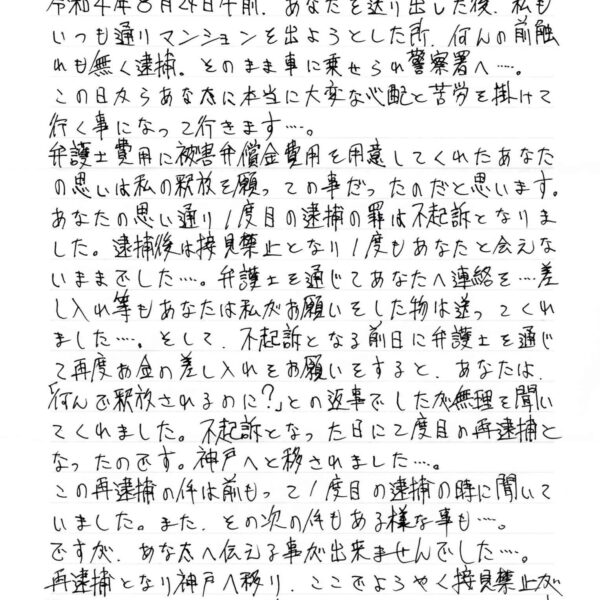 令和4年8月24日午前、あなたを送り出した後、私も
いつも通りマンションを出ようとした所、何んの前触
れも無く逮捕。そのまま車に乗せられ警察署へ…。
この日からあなたに本当に大変な心配と苦労を掛けて
行く事になって行きます…。
弁護士費用に被害弁償金費用を用意してくれたあなた
の思いは私の釈放を願っての事だったのだと思います。
あなたの思い通り1度目の逮捕の罪は不起訴となりま
した。逮捕後は接見禁止となり1度もあなたと会えな
いままでした…。弁護士を通じてあなたへ連絡を…差
し入れ等もあなたは私がお願いをした物は送ってくれ
ました…。そして、不起訴となる前日に弁護士を通じ
て再度お金の差し入れをお願いをすると、あなたは、
「何んで釈放されるのに?」との返事でしたが無理を聞い
てくれました。不起訴となった日に2度目の再逮捕と
なったのです。神戸へと移されました…。
この再逮捕の件は前もって1度目の逮捕の時に聞いて
いました。また、その次の件もある様な事も…。
ですが、あなたへ伝える事が出来ませんでした…。
再逮捕となり神戸へ移り、ここでようやく接見禁止が